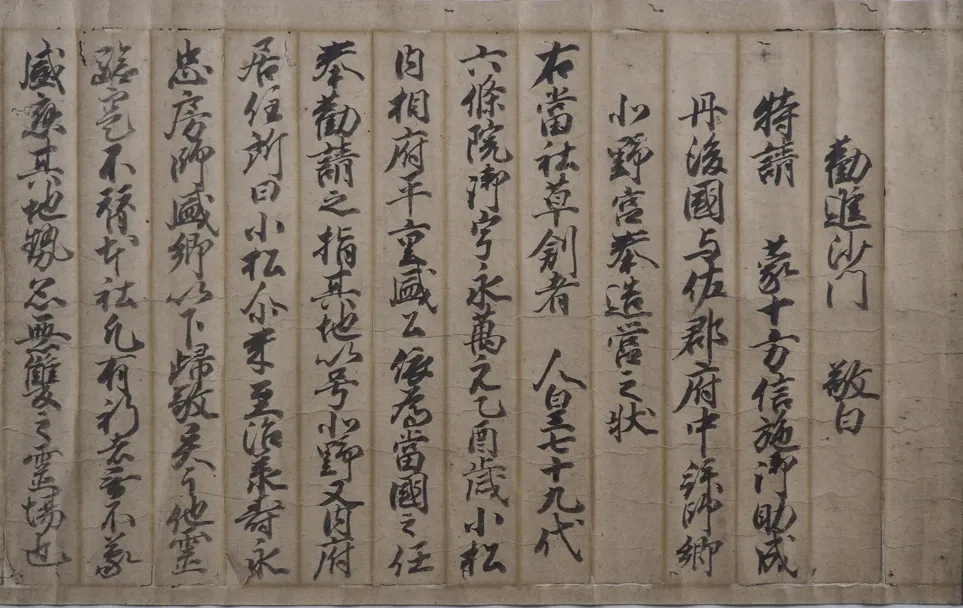 勸進沙門　敬白
特請　蒙十方信施御助成
丹後國与佐郡府中拝師郷
小野宮奉造営之状
右當社草創者　人皇七十九代
六條院御宇永萬元乙酉歳小松
内相府平重盛公依為當國之任
奉勸請之指其地以号小野又内府
居住所曰小松尓来至治承寿永
忠房師盛郷以下歸敬異于他靈
不替本社凡有祈者無不蒙
感應其地勢忝無雙之靈場也